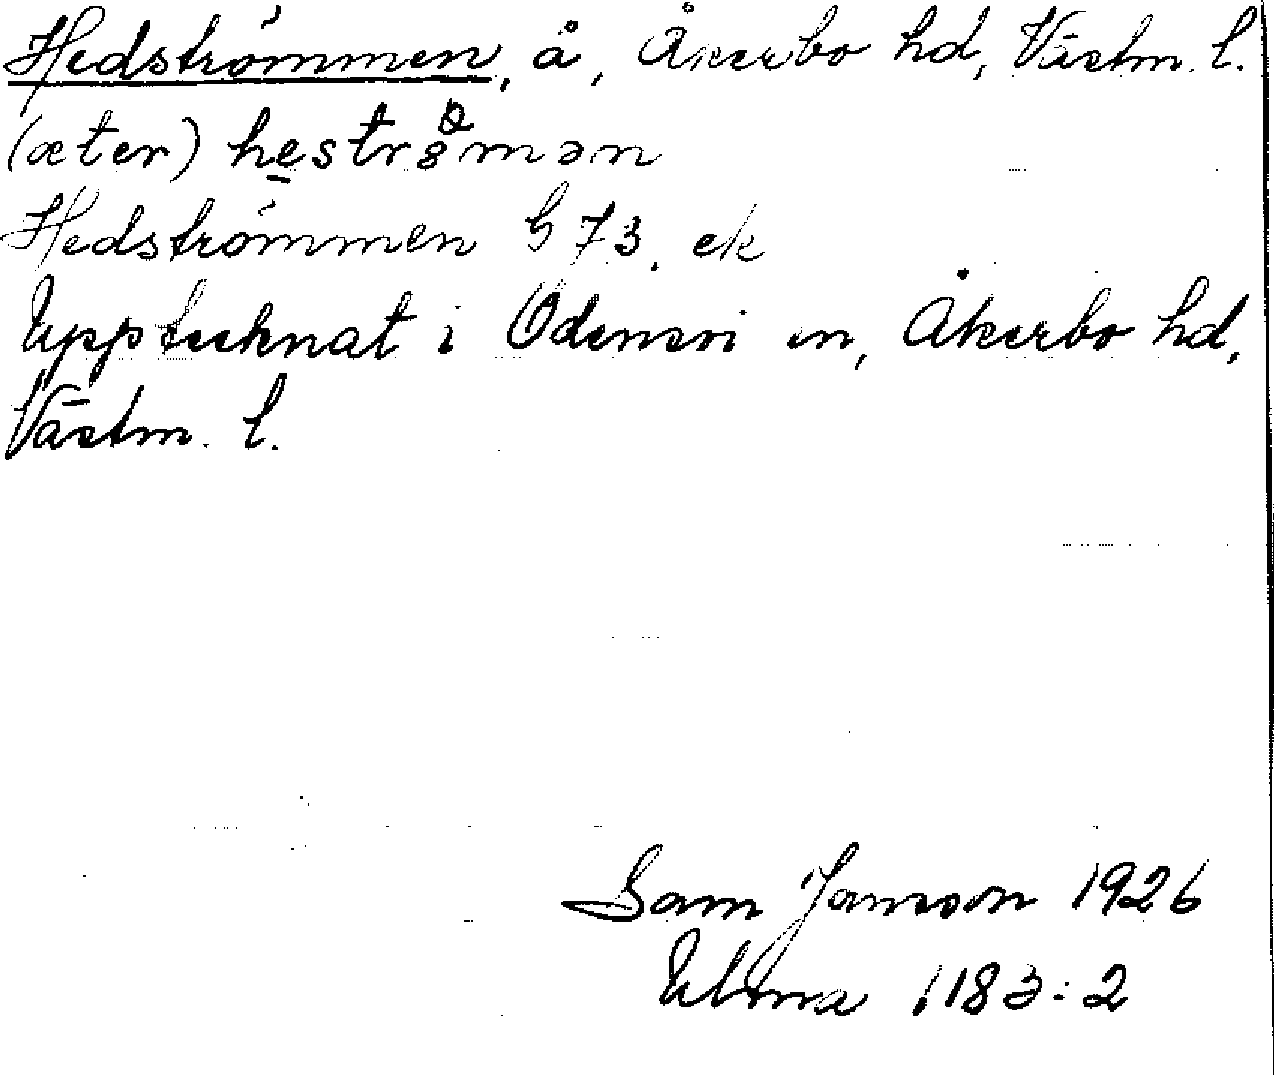 Hedströmmen, å, Åkerbo hd, Västm. l.
(æter) heströmən
Hedströmmen G 73. ek
Upptecknat i Odensvi sn, Åkerbo hd,
Västm. l.
Sam Janson 1926
Ulma 1183:2